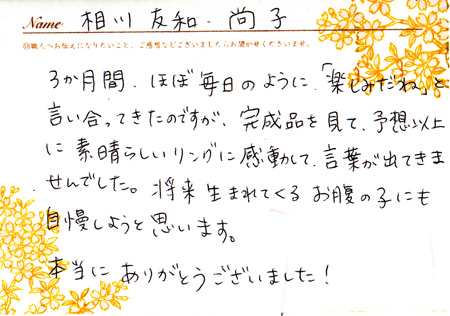 Name 相川 友和・尚子
◎職人へお伝えになりたいこと、ご感想などございましたらお聞かせくださいませ。
3か月間、ほぼ毎日のように、「楽しみだね」と
言い合ってきたのですが、完成品を見て、予想以上
に素晴らしいリングに感動して、言葉が出てきま
せんでした。将来生まれてくるお腹の子にも
自慢しようと思います。
本当にありがとうございました！